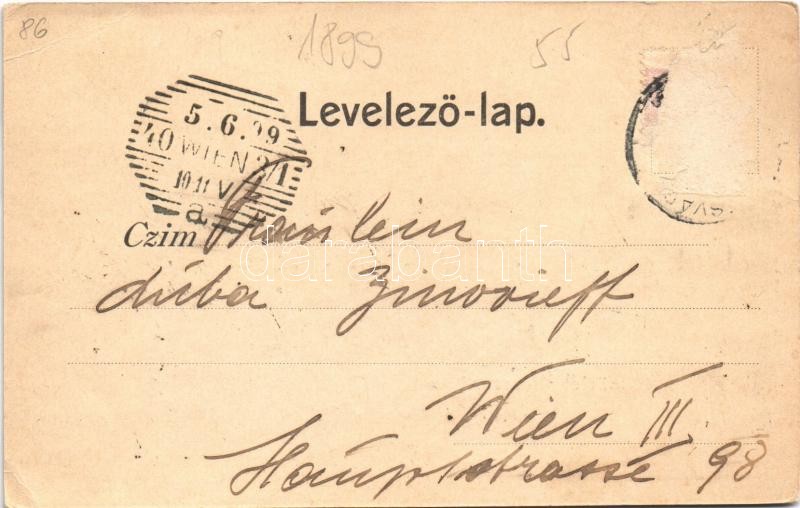 86
1899
55
Levelező-lap.
5.6.99
40 WIEN 3/1
10.11 V
a
Czim Fräulein
Luba Zinovieff
Wien III
Hauptstrasse 98
darabanth